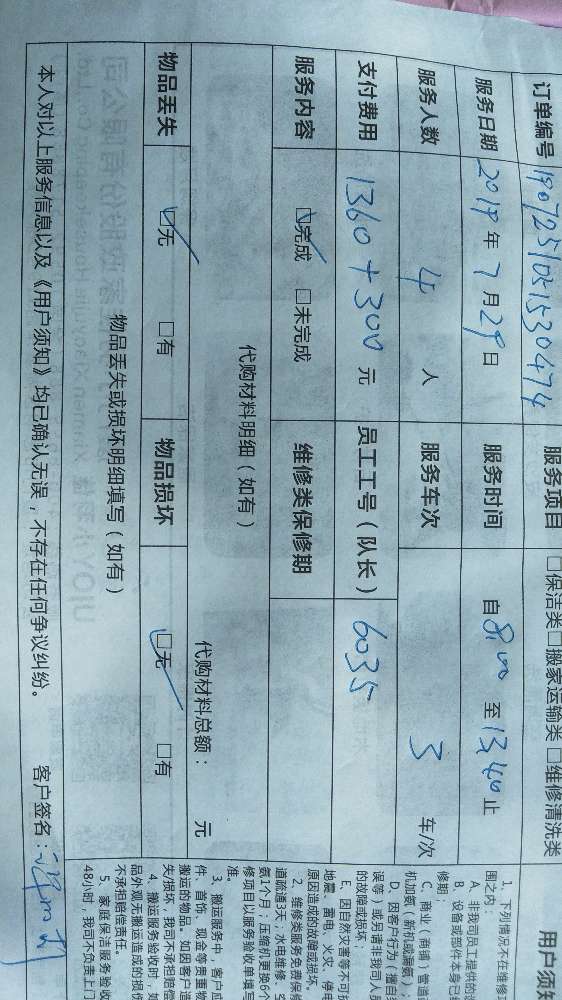 订单编号 1907251051530474 服务项目 □保洁类□搬家运输类□维修清洗类
服务日期 2019年7月29日 服务时间 自8:00至13:40止
服务人数 4人 服务车次 3车/次
支付费用 1360+300元 员工工号（队长） 6035
服务内容 ☑完成 □未完成 维修类保修期
代购材料明细（如有）
代购材料总额： 元
物品丢失 ☑无 □有 物品损坏 ☑无 □有
物品丢失或损坏明细填写（如有）
本人对以上服务信息以及《用户须知》均已确认无误，不存在任何争议纠纷。 客户签名：
用户须知
1、下列情况不在维修
围之内：
A、非我司员工提供的
B、设备或部件本身已
修期；
C、商业（商铺、管道
机加氨（新机或漏氨）
D、因客户行为（擅自
误等）或另请非我司人员
的故障或损坏；
E、因自然灾害等不可抗
地震、雷电、火灾、停电
原因造成的故障或损坏。
2、维修类服务免费保修
道疏通3天；水电维修、空
氨1个月；压缩机更换6个
修项目以服务验收单填写
准。
3、搬运服务中，客户应
件、首饰、现金等贵重物
搬运的物品。如因客户造
失/损坏，我司不承担赔偿
4、搬运服务验收时，如
品外观无搬运造成的损伤
不承担赔偿责任。
5、家庭保洁服务验收
48小时，我司不负责上门